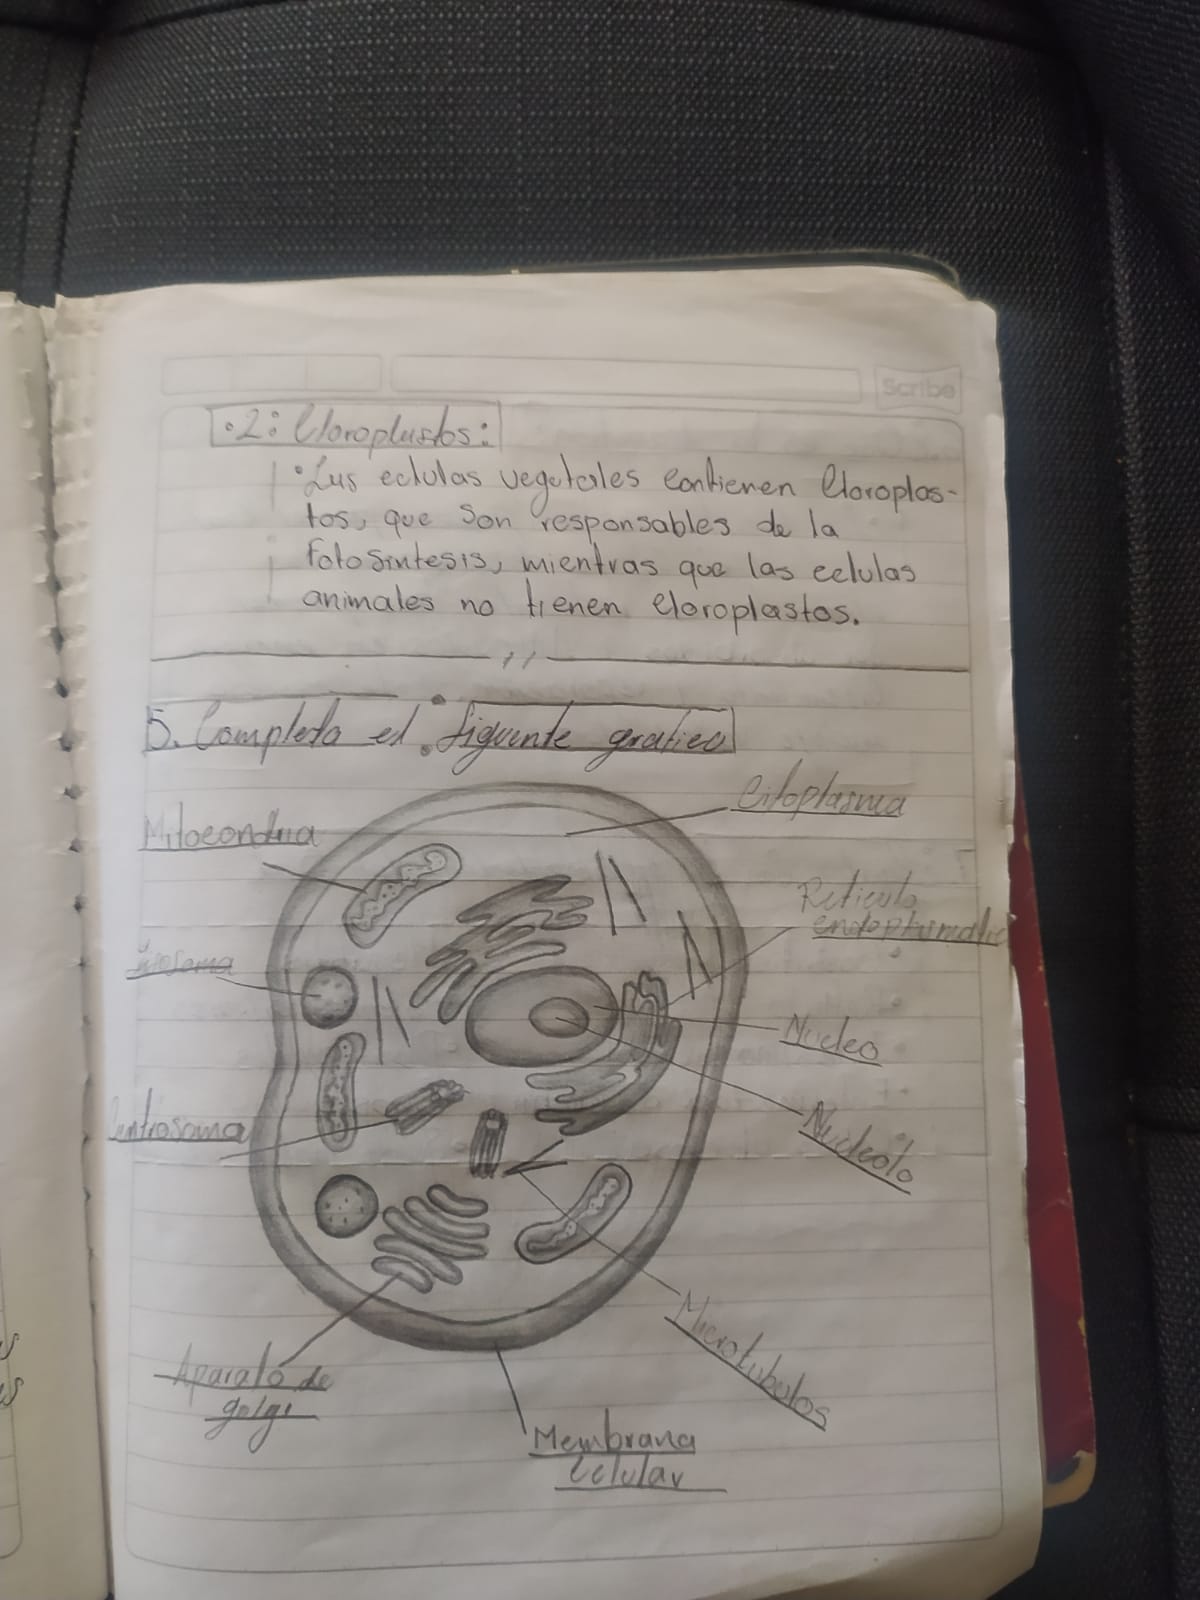 Scribe
·2: Cloroplastos:
·Las celulas vegetales contienen Cloroplas-
tos, que son responsables de la
fotosintesis, mientras que las celulas
animales no tienen Cloroplastos.
5. Completa el siguente grafico
Citoplasma
Mitocondria
Reticulo
endoplasmatic
Nucleo
Centrosoma
Nucleolo
Microtubulos
Aparato de
golgi
Membrana
Celular